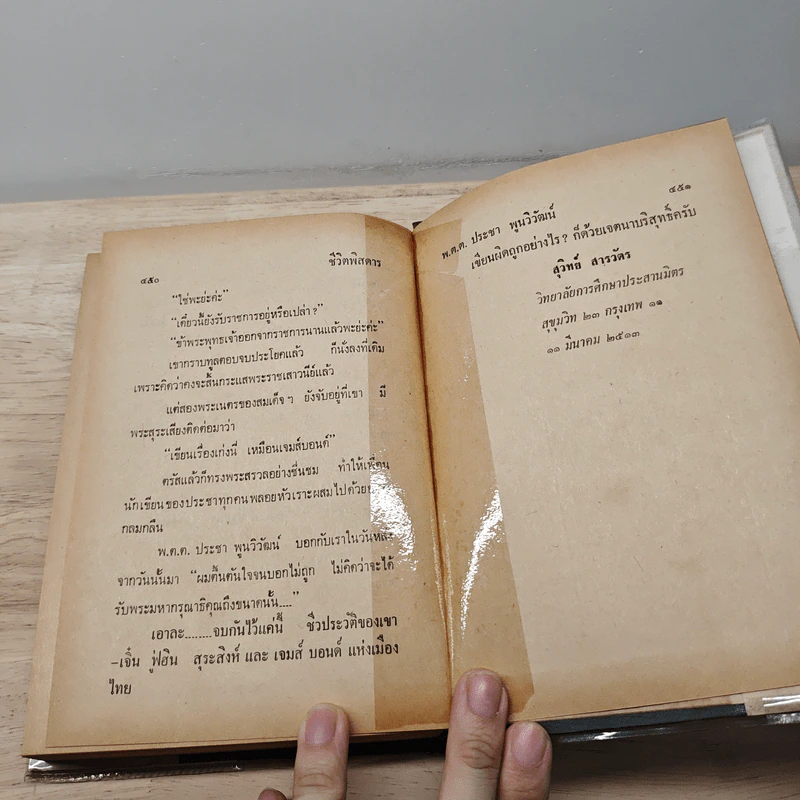 ๔๕๐
ชีวิตพิสดาร
“ใช่พะย่ะค่ะ”
“เดี๋ยวนี้ยังรับราชการอยู่หรือเปล่า?”
“ข้าพระพุทธเจ้าออกจากราชการนานแล้วพะย่ะค่ะ”
เขากราบทูลตอบจบประโยคแล้ว ก็นั่งลงที่เดิม
เพราะคิดว่าคงจะสิ้นกระแสพระราชเสาวนีย์แล้ว
แต่สองพระเนตรของสมเด็จฯ ยังจับอยู่ที่เขา มี
พระสุระเสียงติดต่อมาว่า
“เขียนเรื่องเก่งนี่ เหมือนเจมส์บอนด์”
ตรัสแล้วก็ทรงพระสรวลอย่างชื่นชม ทำให้เพื่อน
นักเขียนของประชาทุกคนพลอยหัวเราะผสมไปด้วย
กลมกลืน
พ.ต.ต. ประชา พูนวิวัฒน์ บอกกับเราในวันหลัง
จากวันนั้นมา “ผมตื้นตันใจจนบอกไม่ถูก ไม่คิดว่าจะได้
รับพระมหากรุณาธิคุณถึงขนาดนั้น....”
เอาละ........จบกันไว้แค่นี้ ชีวประวัติของเขา
–เจิ๋น ฟูฮิน สุระสิงห์ และ เจมส์ บอนด์ แห่งเมือง
ไทย
๔๕๑
พ.ต.ต. ประชา พูนวิวัฒน์
เขียนผิดถูกอย่างไร? ก็ด้วยเจตนาบริสุทธิ์ครับ
สุวิทย์ สารวัตร
วิทยาลัยการศึกษาประสานมิตร
สุขุมวิท ๒๓ กรุงเทพ ๑๑
๑๑ มีนาคม ๒๕๑๓